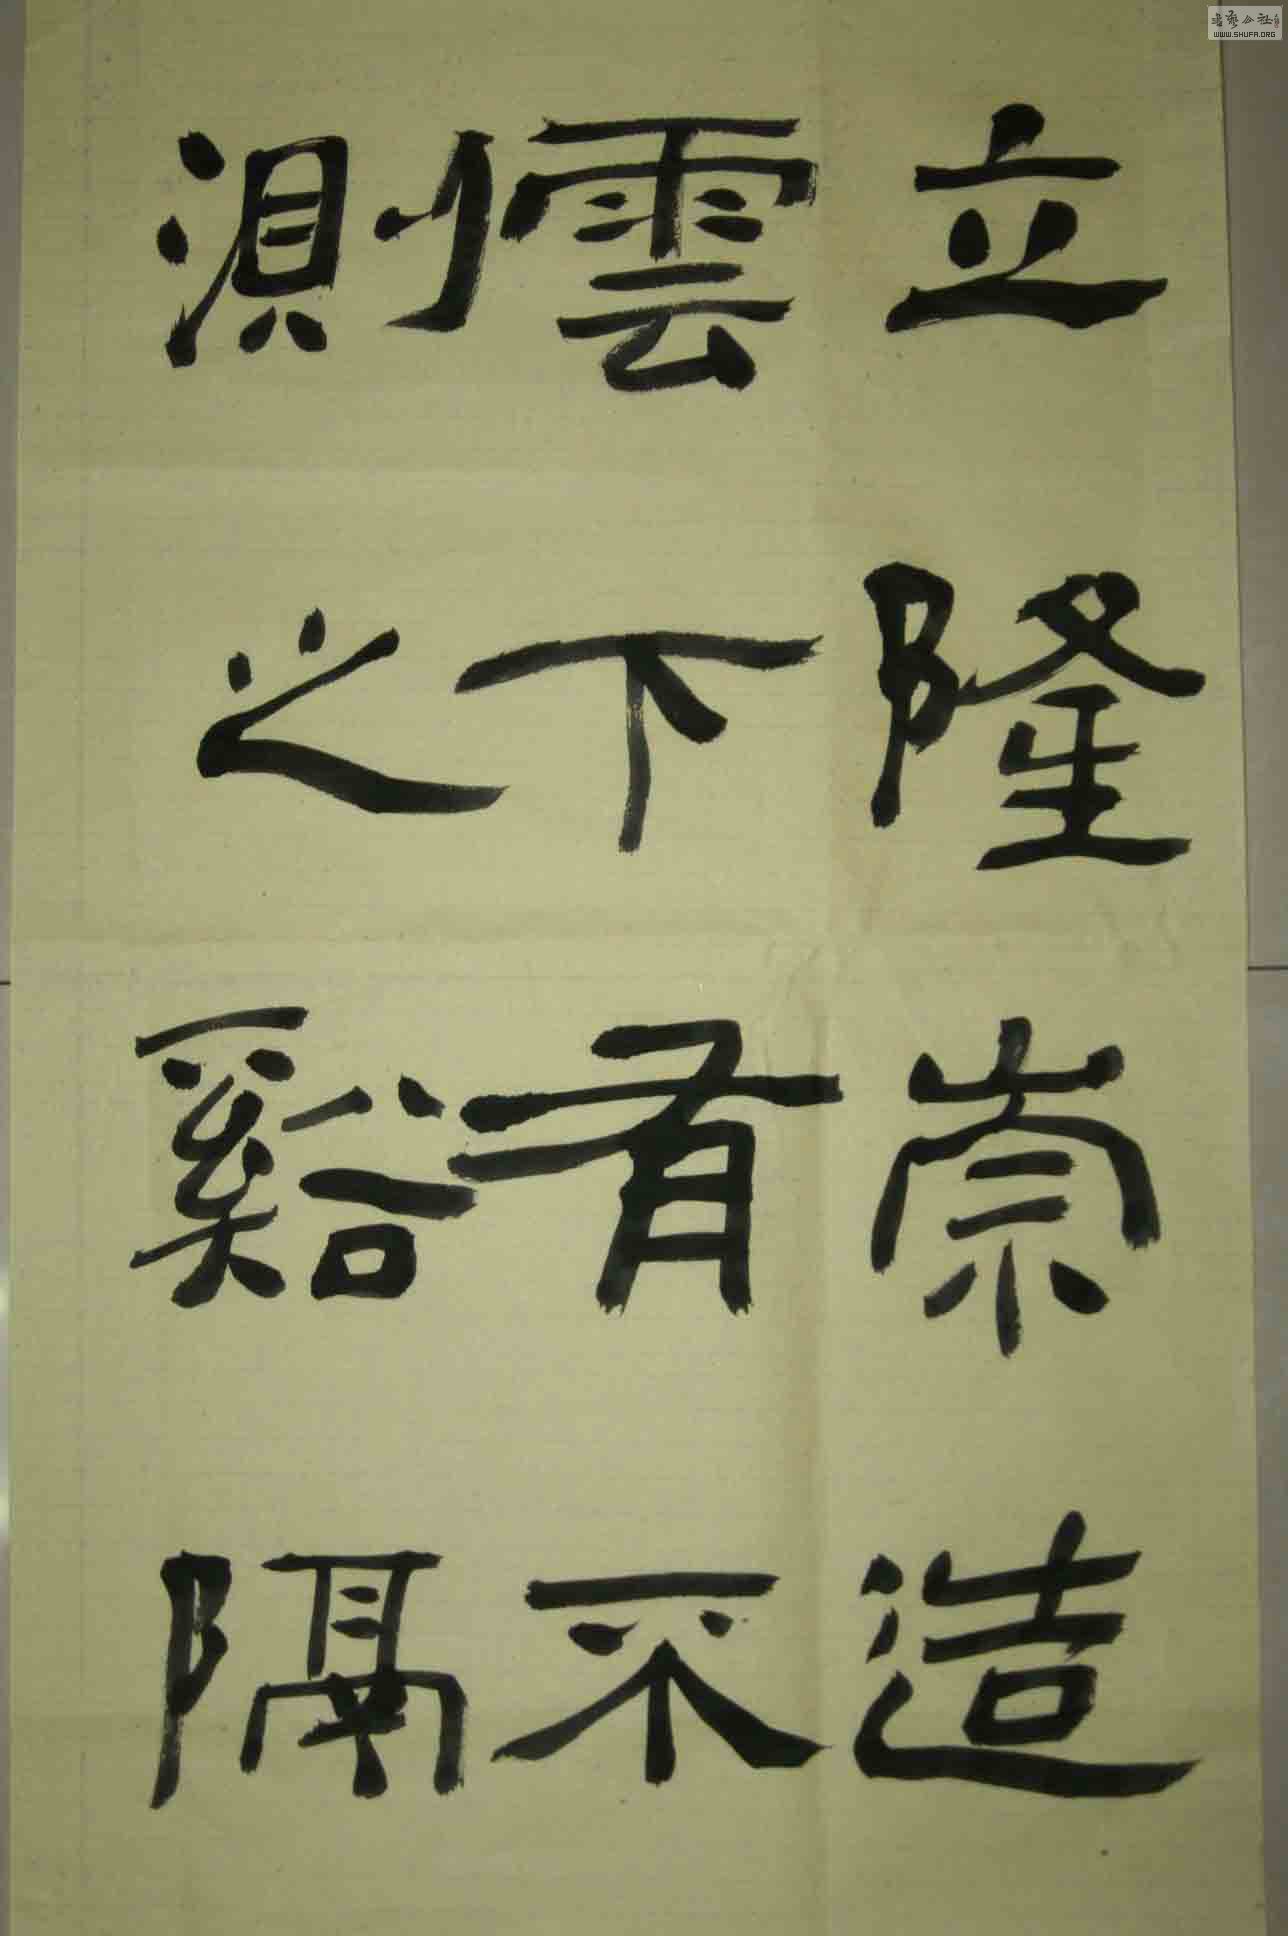 立隆崇造
雲下有不
測之谿隔
書藝公社
WWW.SHUFA.ORG